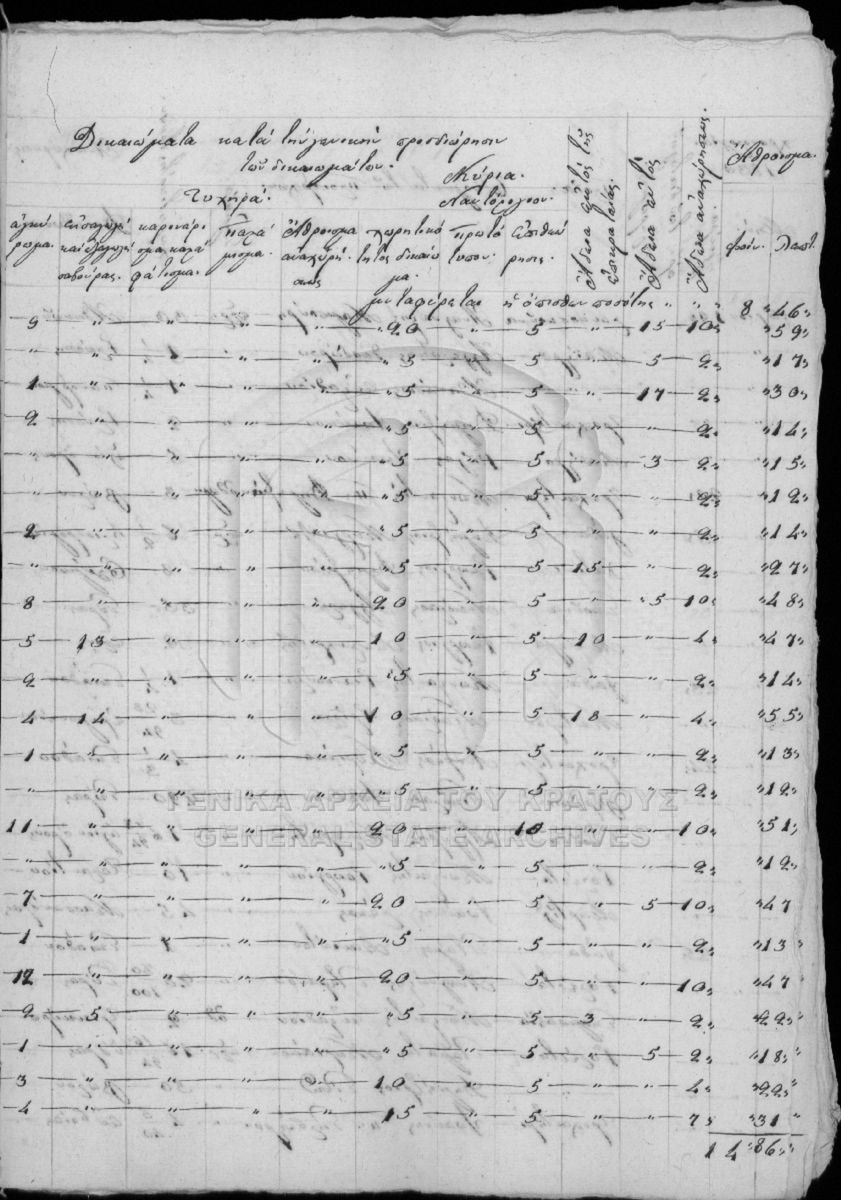 Δικαιώματα κατά τὴν γενικὴν προσδιώρησιν
τοῦ δικαιωμάτων.
Τυχηρά. Κύρια. Ναυτολογίου.
Ἄδεια ἐντὸς τῆς ἐπικρατείας.
Ἄδεια ἐκτός
Ἄδεια ἀναχωρήσεως.
Ἄθροισμα.
φοίν. Λεπτ.
Ἄθροισμα ἀναχωρή-
σεως
χωρητικό-
τητος δικαίω-
μα.
πρωτό-
τυπον.
ἐπιθεώ-
ρησις.
μεταφέρεται ἡ ὄπισθεν ποσότης " " " 8 " 46 "
9 " " " " 20 " 5 " 15 10 " 59 "
" " " " " 5 " 5 " 5 2 " 17 "
1 " " " " 5 " 5 " 17 2 " 30 "
2 " " " " 5 " 5 " " 2 " 14 "
" " " " " 5 " 5 " 3 2 " 15 "
" " " " " 5 " 5 " " 2 " 12 "
2 " " " " 5 " 5 " " 2 " 14 "
" " " " " 5 " 5 15 " 2 " 27 "
8 " " " " 20 " 5 " 5 10 " 48 "
5 13 " " " 10 " 5 10 " 4 " 47 "
2 " " " " 5 " 5 " " 2 " 14 "
4 14 " " " 10 " 5 18 " 4 " 55 "
1 " " " " 5 " 5 " " 2 " 13 "
" " " " " 5 " 5 " " 2 " 12 "
11 " " " " 20 " 10 " " 10 " 51 "
" " " " " 5 " 5 " " 2 " 12 "
7 " " " " 20 " 5 " 5 10 " 47
1 " " " " 5 " 5 " " 2 " 13 "
12 " " " " 20 " 5 " " 10 " 47 "
2 5 " " " 5 " 5 3 " 2 " 22 "
1 " " " " 5 " 5 " 5 2 " 18 "
3 " " " " 10 " 5 " " 4 " 22 "
4 " " " " 15 " 5 " " 7 " 31 "
14 " 86 "
ΓΕΝΙΚΑ ΑΡΧΕΙΑ ΤΟΥ ΚΡΑΤΟΥΣ
GENERAL STATE ARCHIVES